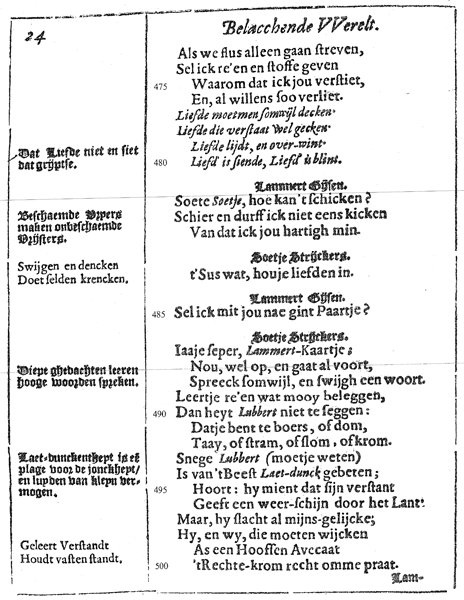 24
Belacchende VVerelt.
Als we flus alleen gaan streven,
Sel ick re'en en stoffe geven
475 Waarom dat ick jou verstiet,
En, al willens soo verliet.
Liefde moetmen somwijl decken.
Liefde die verstaat wel gecken.
Liefde lijdt, en over-wint.
480 Liefd' is siende, Liefd' is blint.
Dat Liefde niet en siet
dat grijptse.
Lammert Gijsen.
Soete Soetje, hoe kan't schicken?
Schier en durff ick niet eens kicken
Van dat ick jou hartigh min.
Beschaemde Vryers
maken onbeschaemde
Vrijsters.
Soetje Strijckers.
t'Sus wat, hou je liefden in.
Swijgen en dencken
Doet selden krencken.
Lammert Gijsen.
485 Sel ick mit jou nae gint Paartje?
Soetje Strijckers.
Iaaje seper, Lammert-Kaartje;
Nou, wel op, en gaat al voort,
Spreeck somwijl, en swijgh een woort.
Diepe ghedachten leeren
hooge woorden spreken.
Leertje re'en wat mooy beleggen,
490 Dan heyt Lubbert niet te seggen:
Datje bent te boers, of dom,
Taay, of stram, of slom, of krom.
Snege Lubbert (moetje weten)
Is van 't Beest Laet-dunck gebeten;
495 Hoort: hy mient dat sijn verstant
Geeft een weer-schijn door het Lant.
Laet-dunckentheyt is een
plage voor de jonckheyt/
en luyden van kleyn ver-
mogen.
Maar, hy slacht al mijns-gelijcke;
Hy, en wy, die moeten wijcken
As een Hooffsen Avecaat
500 'tRechte-krom recht omme praat.
Geleert Verstandt
Houdt vasten standt.
Lam-